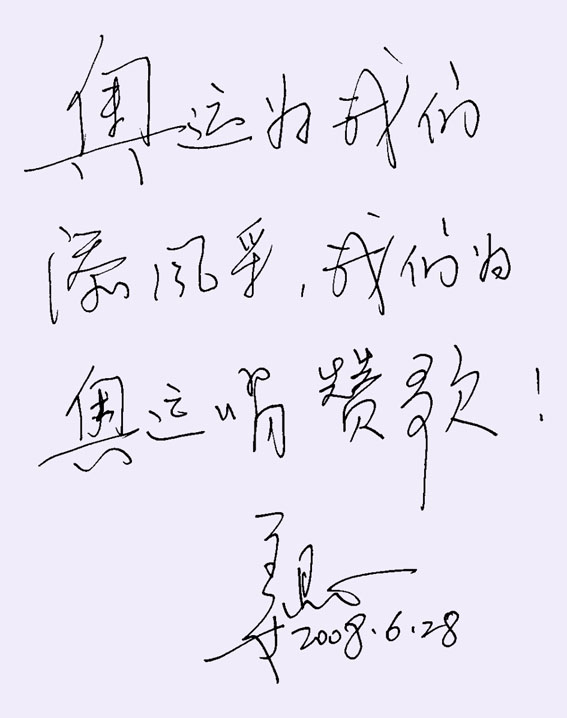 奥运为我们
添风采,我们为
奥运唱赞歌!
2008.6.28